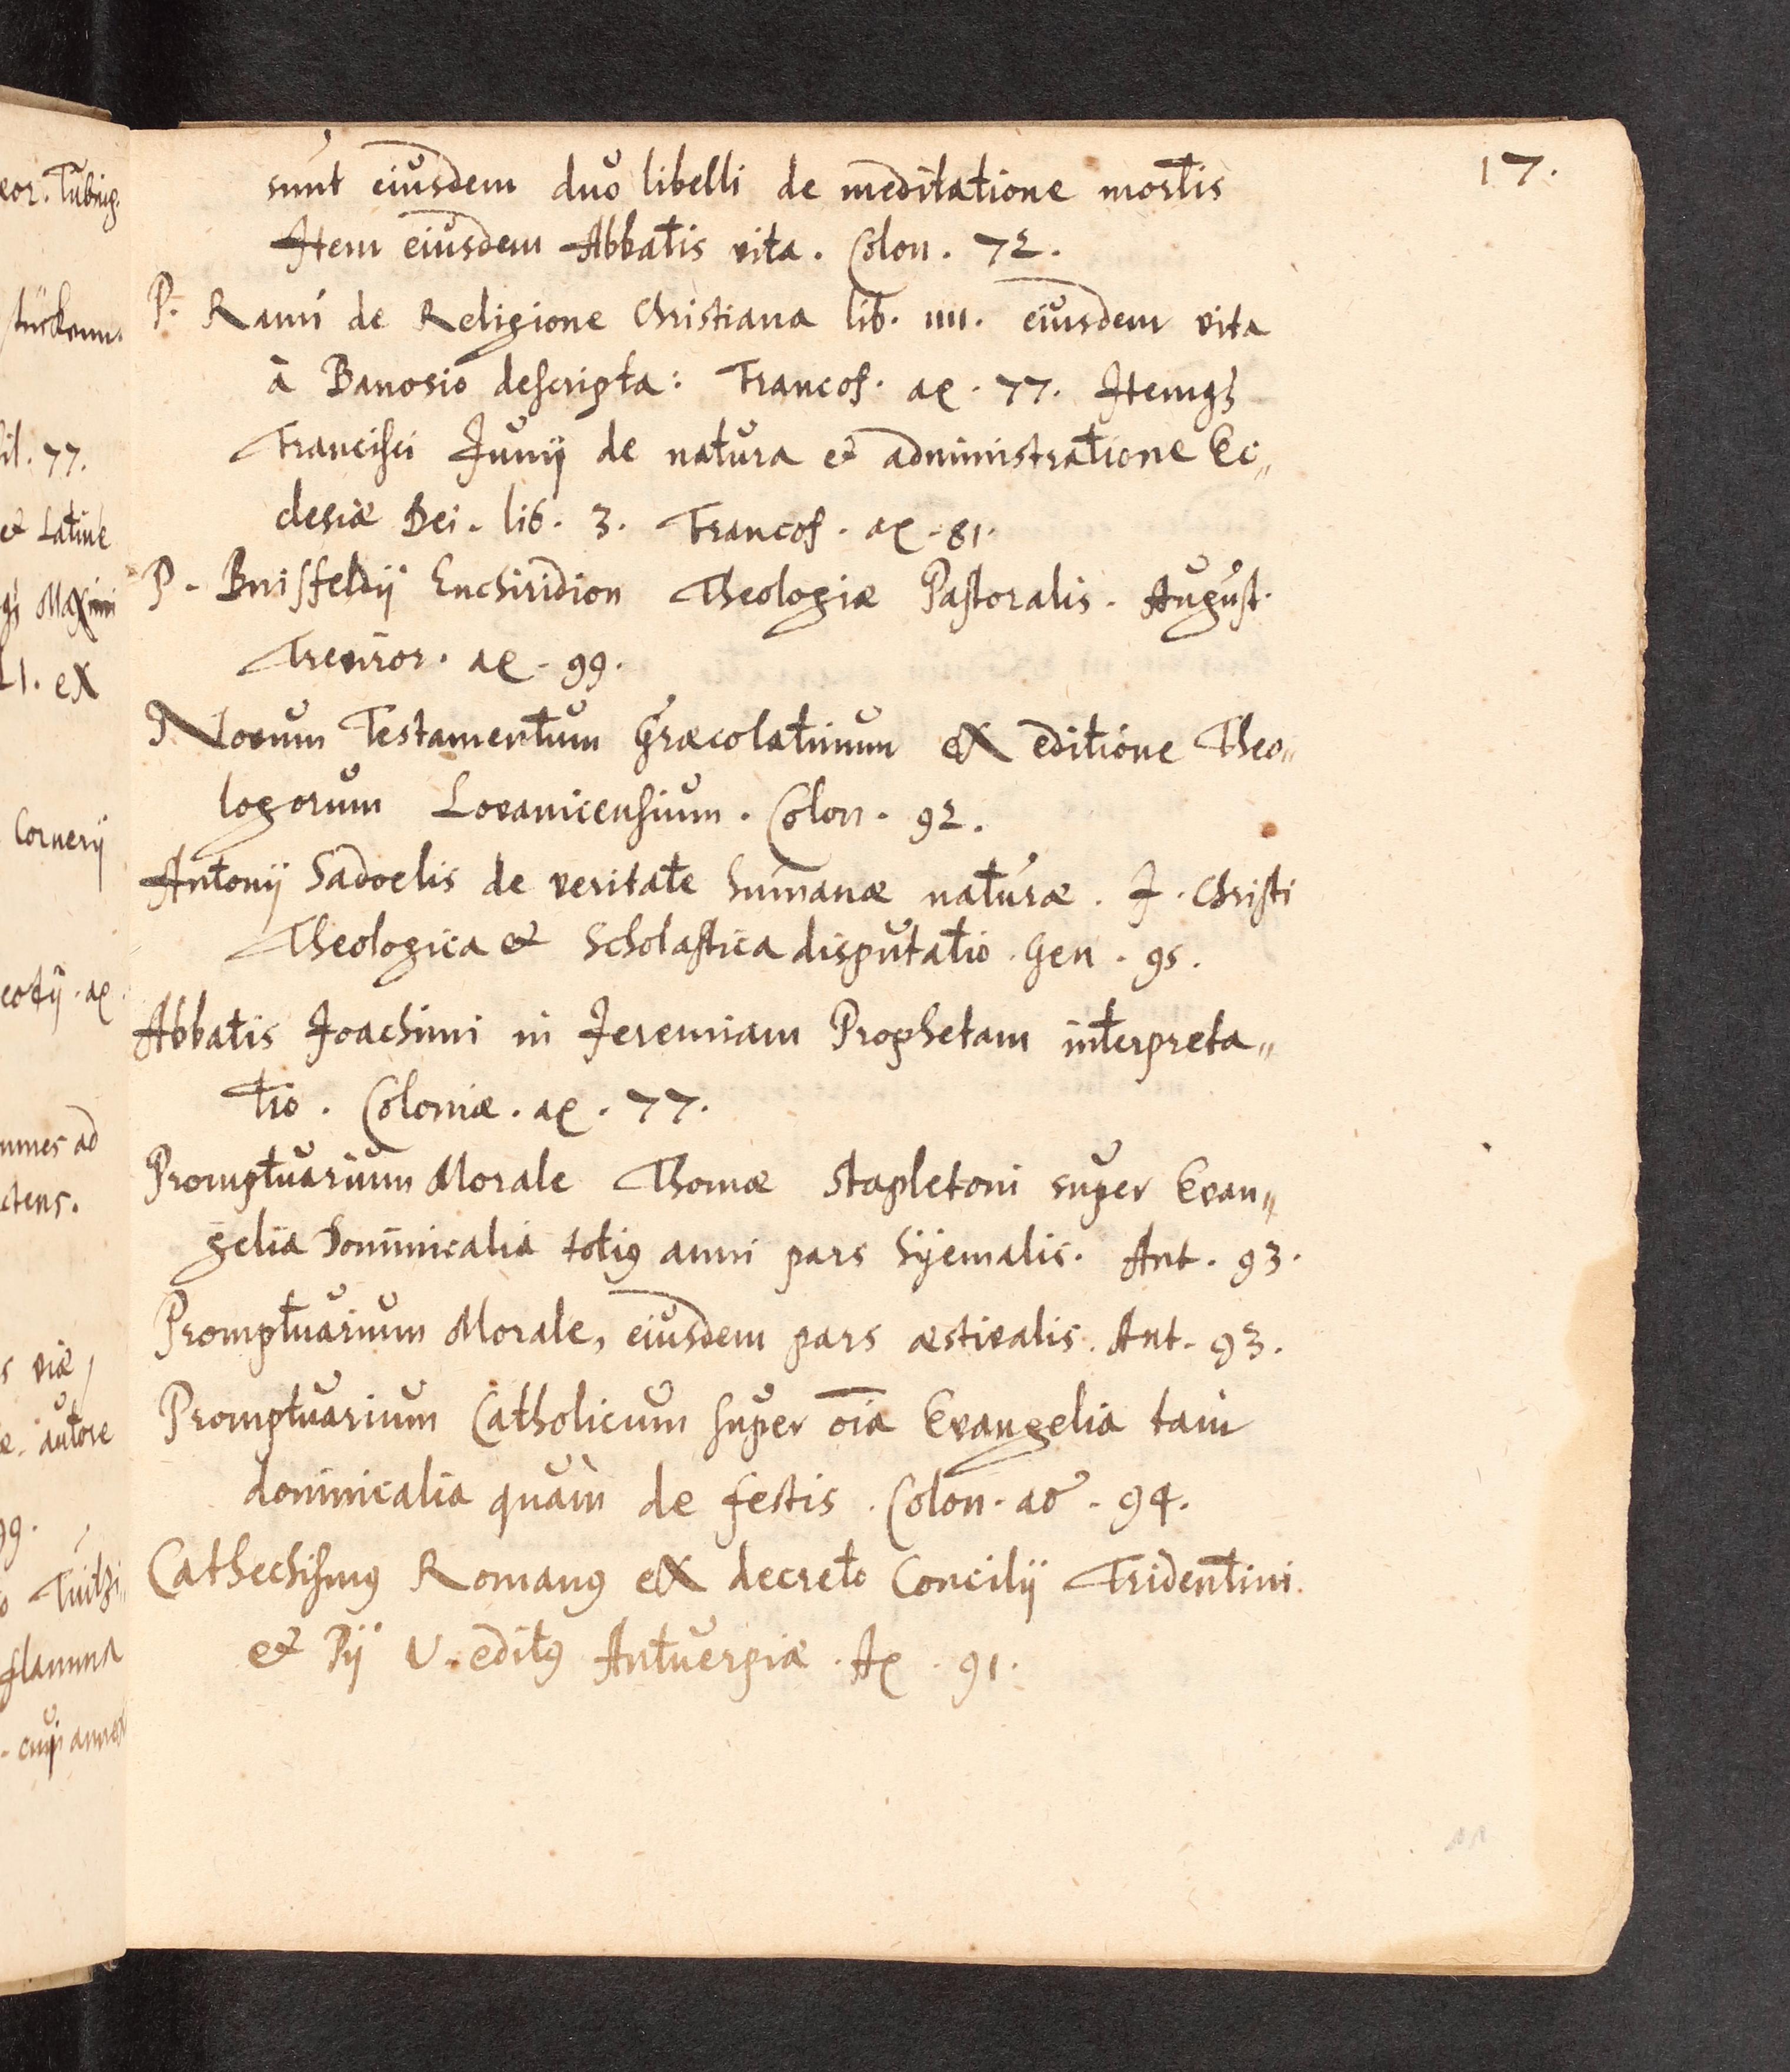 17.
sunt eiusdem duo libelli de meditatione mortis
Item eiusdem Abbatis vita. Colon. 72.
P. Rami de Religione Christiana lib. IIII. eiusdem vita
à Banosio descripta: Francof. aē. 77. Itemqꝫ
Francisci Junij de natura et administratione Ec„
clesiæ Dei. lib. 3. Francof. aē. 81.
P. Binsfeldij Enchiridion Theologiæ Pastoralis. August.
Treviror. aē. 99.
Novum Testamentum Græcolatinum ex editione Theo„
logorum Lovanicensium. Colon. 92.
Antonij Sadoelis de veritate humanæ naturæ. J. Christi
Theologica et Scholastica disputatio. Gen. 95.
Abbatis Joachimi in Jeremiam Prophetam interpreta„
tio. Coloniæ. aē. 77.
Promptuarium Morale Thomæ Stapletoni super Evan„
gelia Dominicalia totiꝯ anni pars hÿemalis. Ant. 93.
Promptuarium Morale, eiusdem pars æstivalis. Ant. 93.
Promptuarium Catholicum super oīa Evangelia tam
dominicalia quàm de festis. Colon. aō. 94.
Cathechismꝯ Romanꝯ ex decreto Concilij Tridentini.
et Pij V. editꝯ Antuerpiæ. Aē. 91.